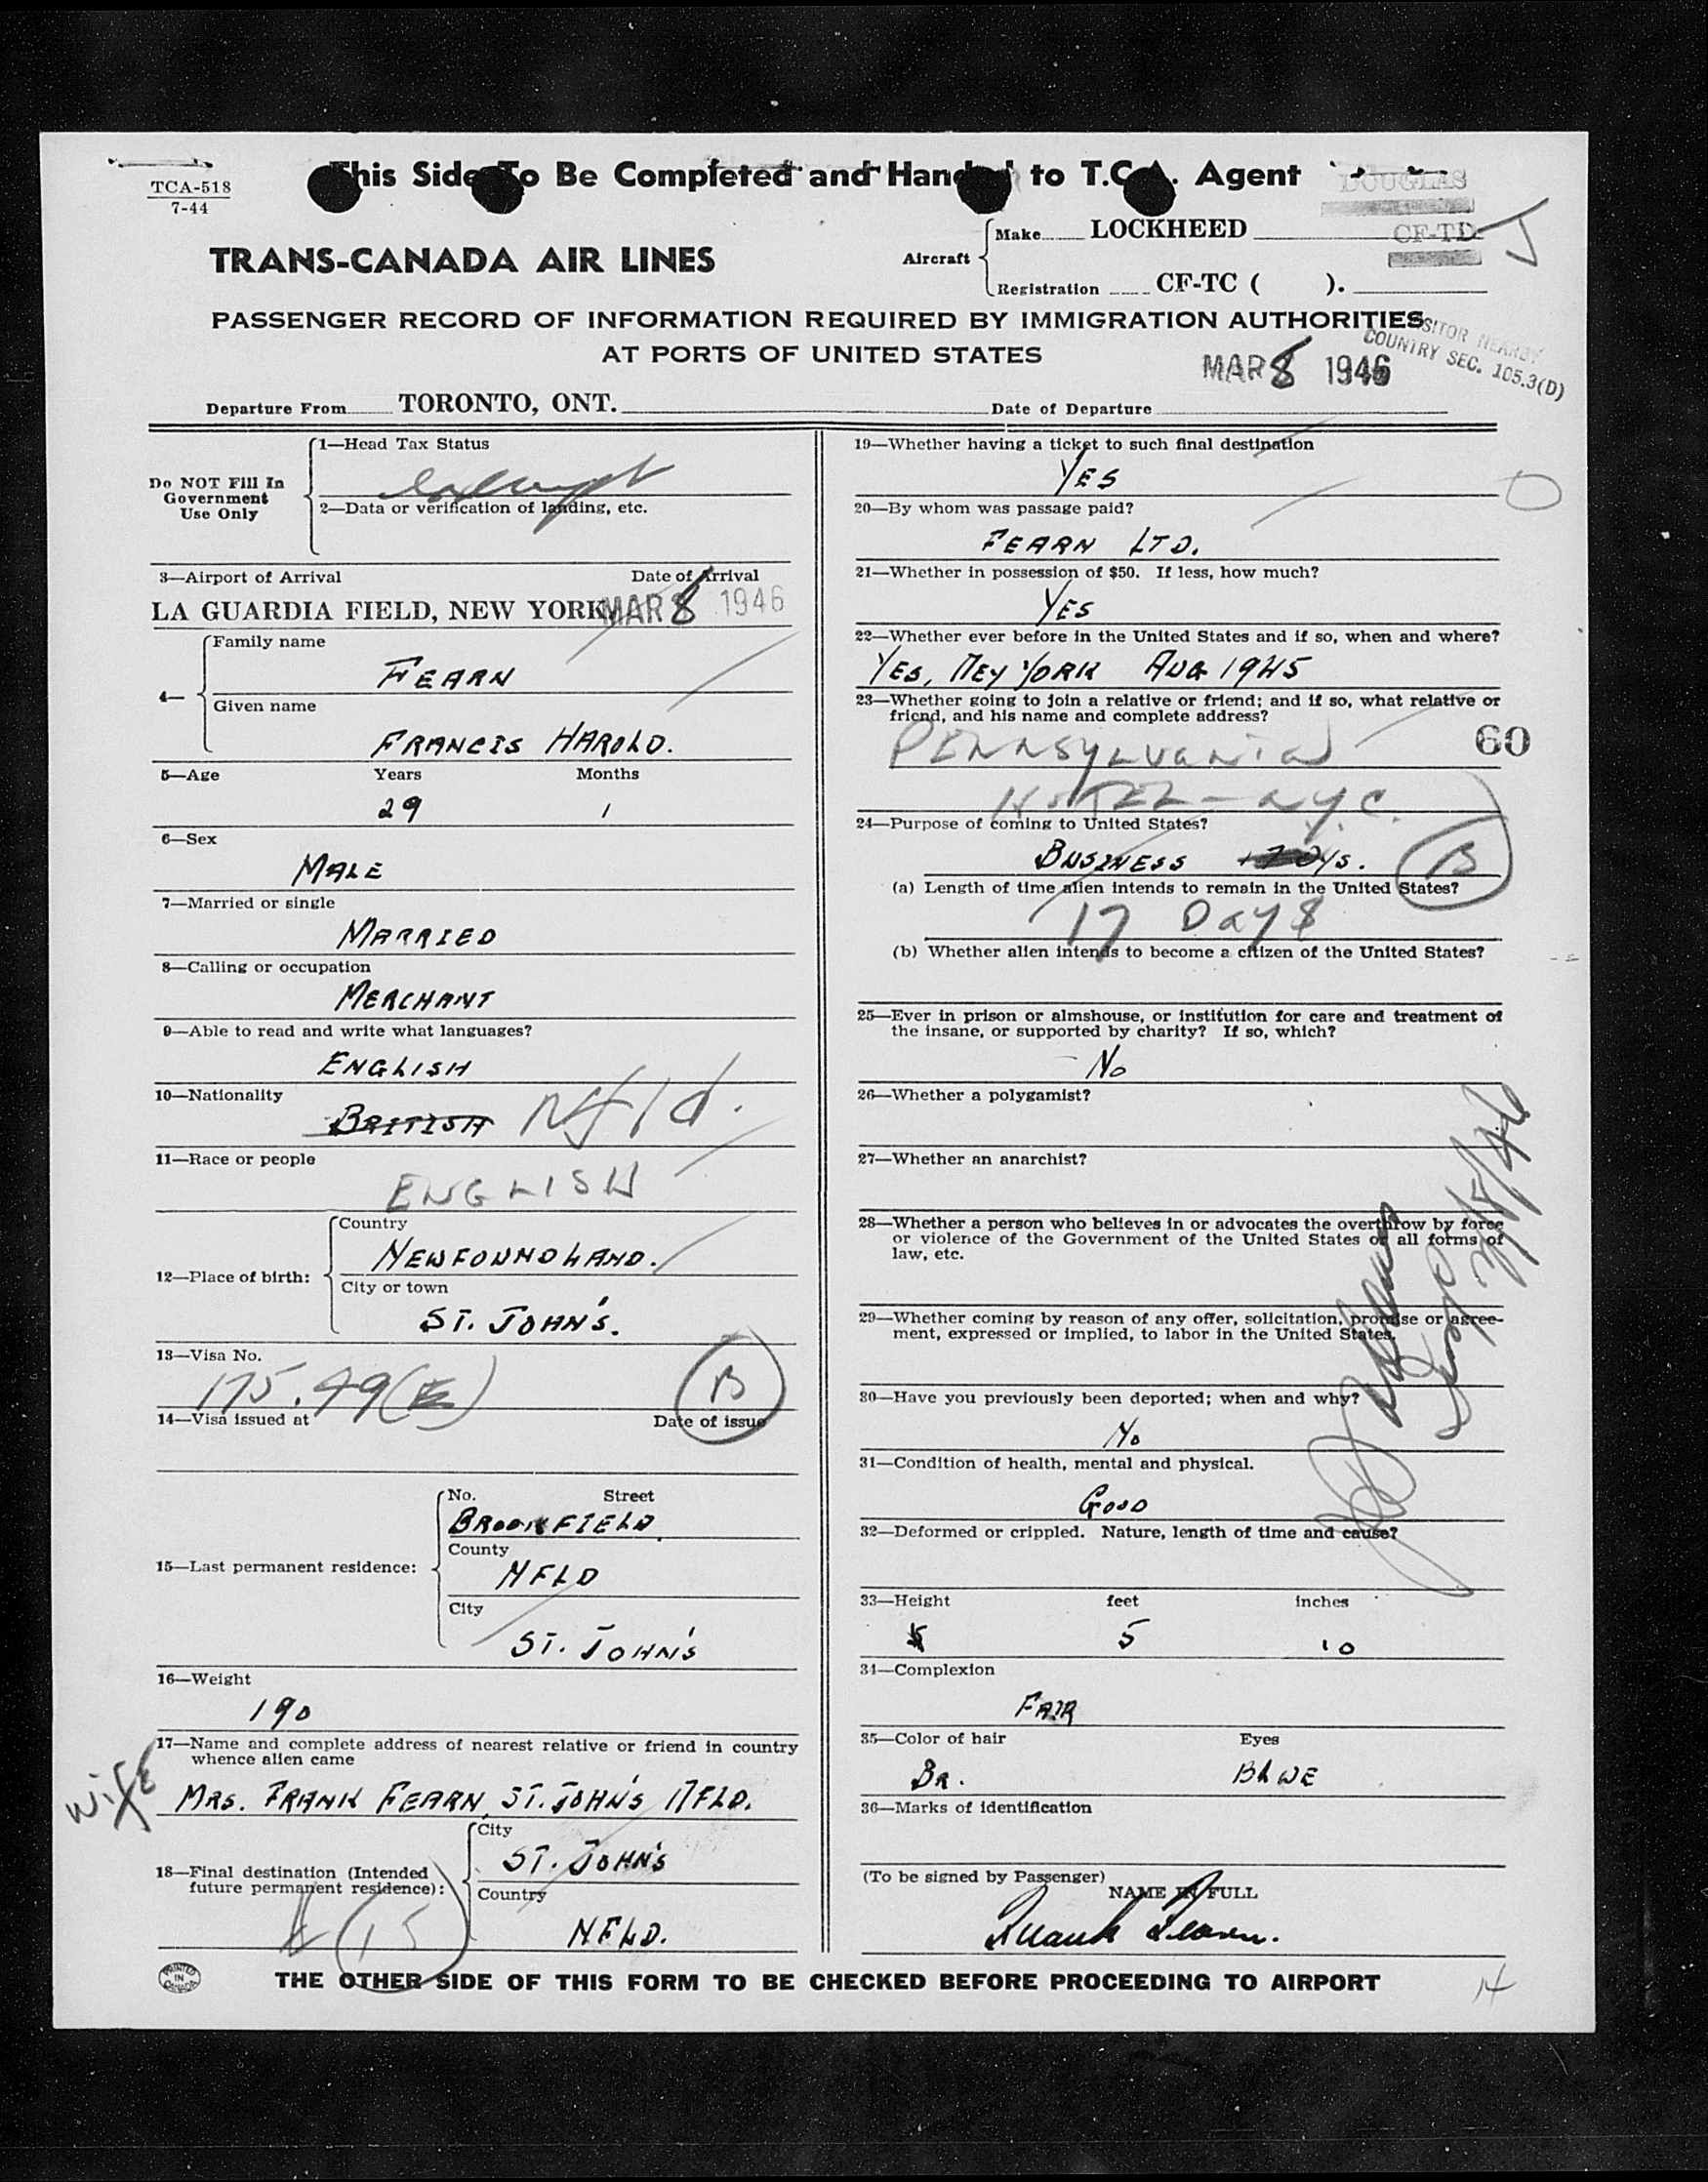 This Side To Be Completed and Handed to T.C.A. Agent
TCA-518
7-44
DOUGLAS
CF-TD J
TRANS-CANADA AIR LINES
Aircraft
Make LOCKHEED
Registration CF-TC ( ).
PASSENGER RECORD OF INFORMATION REQUIRED BY IMMIGRATION AUTHORITIES
AT PORTS OF UNITED STATES
VISITOR NEARBY
COUNTRY SEC. 105.3(D)
MAR 8 1946
Departure From TORONTO, ONT.
Date of Departure
Do NOT Fill In
Government
Use Only
1—Head Tax Status
exempt
2—Data or verification of landing, etc.
3—Airport of Arrival Date of Arrival
LA GUARDIA FIELD, NEW YORK, MAR 8 1946
4—
Family name
FEARN
Given name
FRANCIS HAROLD.
5—Age Years Months
29 1
6—Sex
MALE
7—Married or single
MARRIED
8—Calling or occupation
MERCHANT
9—Able to read and write what languages?
ENGLISH
10—Nationality
BRITISH Nfld.
11—Race or people
ENGLISH
12—Place of birth:
Country
NEWFOUNDLAND.
City or town
ST. JOHN'S.
13—Visa No.
175.49(E) B
14—Visa issued at Date of issue
15—Last permanent residence:
No. Street
BROOKFIELD
County
NFLD
City
ST. JOHN'S
16—Weight
190
17—Name and complete address of nearest relative or friend in country
whence alien came
wife
MRS. FRANK FEARN, ST. JOHN'S NFLD.
18—Final destination (Intended
future permanent residence):
City
ST. JOHN'S
Country
NFLD.
15
19—Whether having a ticket to such final destination
YES
20—By whom was passage paid?
FEARN LTD.
21—Whether in possession of $50. If less, how much?
YES
22—Whether ever before in the United States and if so, when and where?
YES, NEY YORK AUG 1945
23—Whether going to join a relative or friend; and if so, what relative or
friend, and his name and complete address?
60
PENNSYLVANIA
HOTEL - N.Y.C.
24—Purpose of coming to United States?
BUSINESS B
(a) Length of time alien intends to remain in the United States?
17 DAYS
(b) Whether alien intends to become a citizen of the United States?
25—Ever in prison or almshouse, or institution for care and treatment of
the insane, or supported by charity? If so, which?
No
26—Whether a polygamist?
27—Whether an anarchist?
28—Whether a person who believes in or advocates the overthrow by force
or violence of the Government of the United States or all forms of
law, etc.
29—Whether coming by reason of any offer, solicitation, promise or agree-
ment, expressed or implied, to labor in the United States.
30—Have you previously been deported; when and why?
No
31—Condition of health, mental and physical.
GOOD
32—Deformed or crippled. Nature, length of time and cause?
33—Height feet inches
5 10
34—Complexion
FAIR
35—Color of hair Eyes
BR. BLUE
36—Marks of identification
(To be signed by Passenger)
NAME IN FULL
Frank Fearn.
PRINTED IN CANADA
THE OTHER SIDE OF THIS FORM TO BE CHECKED BEFORE PROCEEDING TO AIRPORT